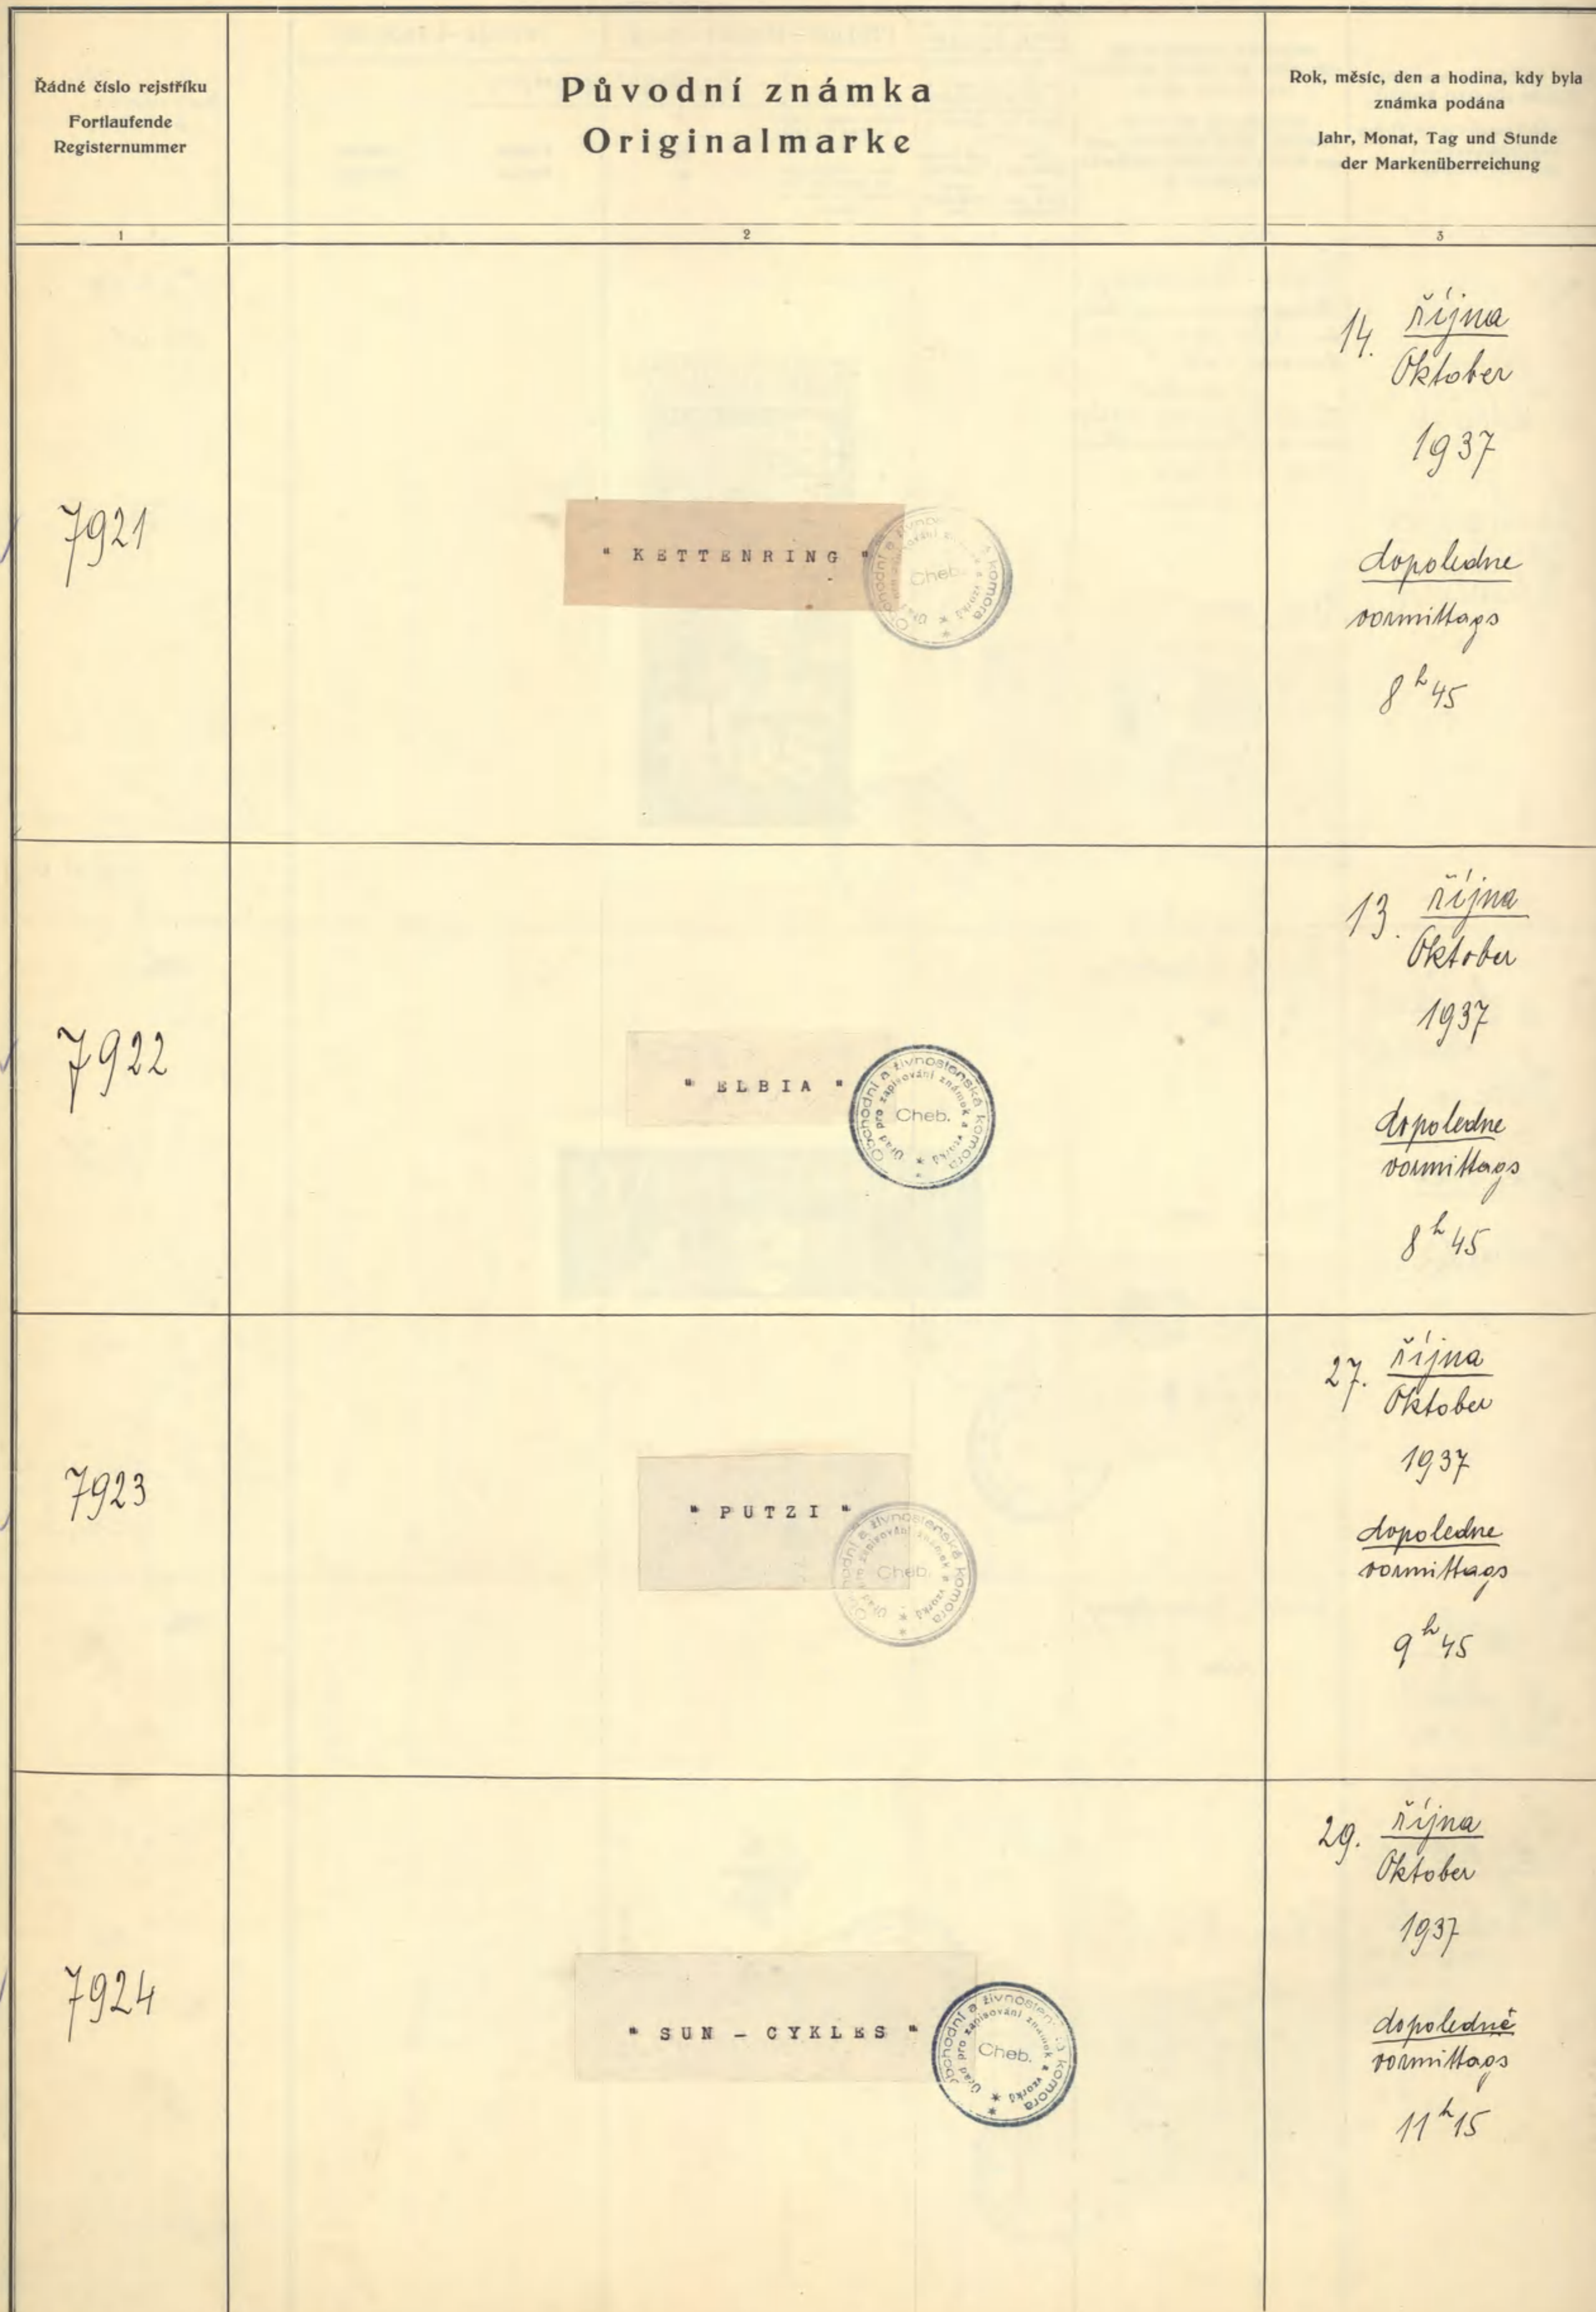 Řádné číslo rejstříku
Fortlaufende
Registernummer
Původní známka
Originalmarke
Rok, měsíc, den a hodina, kdy byla
známka podána
Jahr, Monat, Tag und Stunde
der Markenüberreichung
1
2
3
7921
" KETTENRING "
Cheb.
komora
14. října
Oktober
1937
dopoledne
vormittags
8 h 45
7922
" ELBIA "
Obchodní a živnostenská komora
Úřad pro zapisování známek a vzorků
Cheb.
13. října
Oktober
1937
dopoledne
vormittags
8 h 45
7923
" PUTZI "
živnostenská komora
Cheb.
27. října
Oktober
1937
dopoledne
vormittags
9 h 45
7924
" SUN - CYKLES "
komora
Úřad pro zapisování známek a vzorků
Cheb.
29. října
Oktober
1937
dopoledně
vormittags
11 h 15